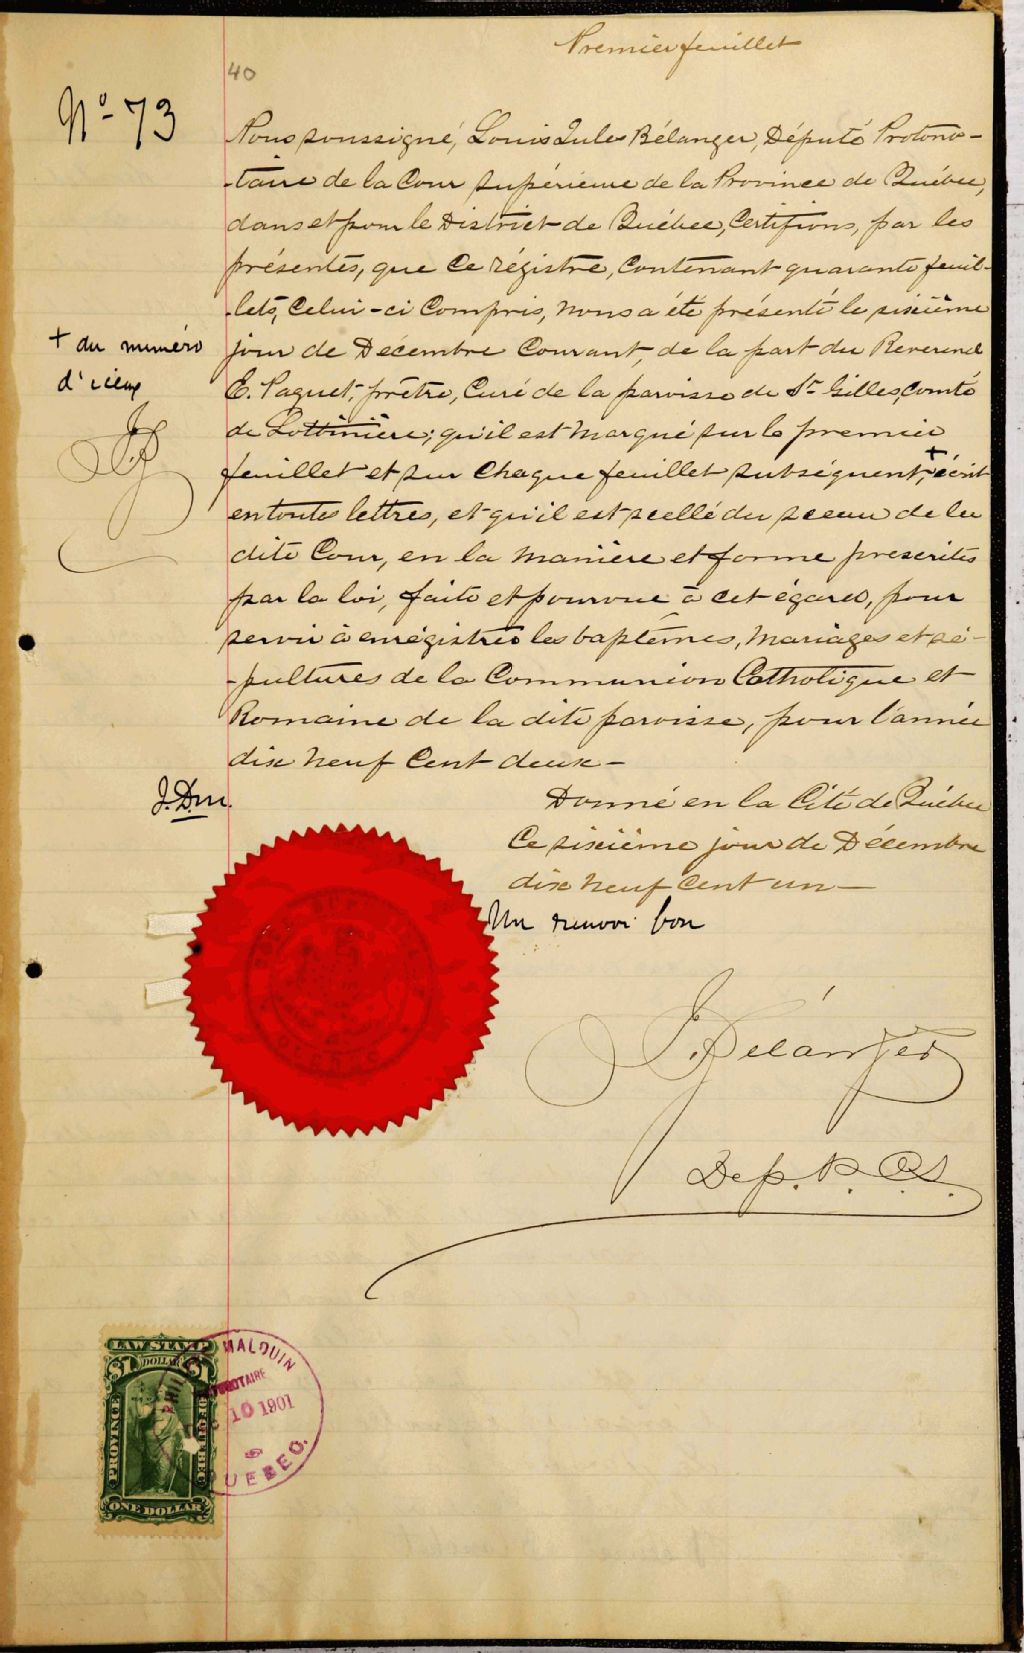 Premier feuillet
40
No 73
Nous soussigné, Louis Jules Bélanger, Député Protono-
-taire de la Cour Supérieure de la Province de Québec,
dans et pour le District de Québec, Certifions, par les
présentes, que ce régistre, contenant quarante feuil-
-lets, celui-ci compris, nous a été présenté le sixième
jour de Décembre Courant, de la part du Reverend
E. Paquet, prêtre, Curé de la paroisse de St Gilles, comté
de Lotbinière; qu'il est marqué sur le premier
feuillet et sur chaque feuillet subséquent, + écrit
en toutes lettres, et qu'il est scellé du sceau de la
dite Cour, en la manière et forme prescrites
par la loi, faite et pourvue à cet égard, pour
servir à enrégistrer les baptêmes, mariages et sé-
-pultures de la Communion Catholique et
Romaine de la dite paroisse, pour l'année
dix neuf cent deux -
+ du numéro
d'iceux
J.B
J.Dm.
Donné en la Cité de Québec
Ce sixième jour de Décembre
dix neuf cent un -
Un renvoi bon
J. Bélanger
Dep. P. C.S.
QUEBEC
LAW STAMP
$1 DOLLAR $1
PROVINCE
OF QUEBEC
ONE DOLLAR
MALOUIN
PROTONOTAIRE
10 1901
QUEBEC.